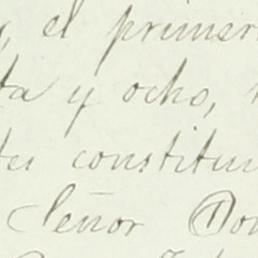 , el primer
ta y ocho,
tes constitu
Señor Don